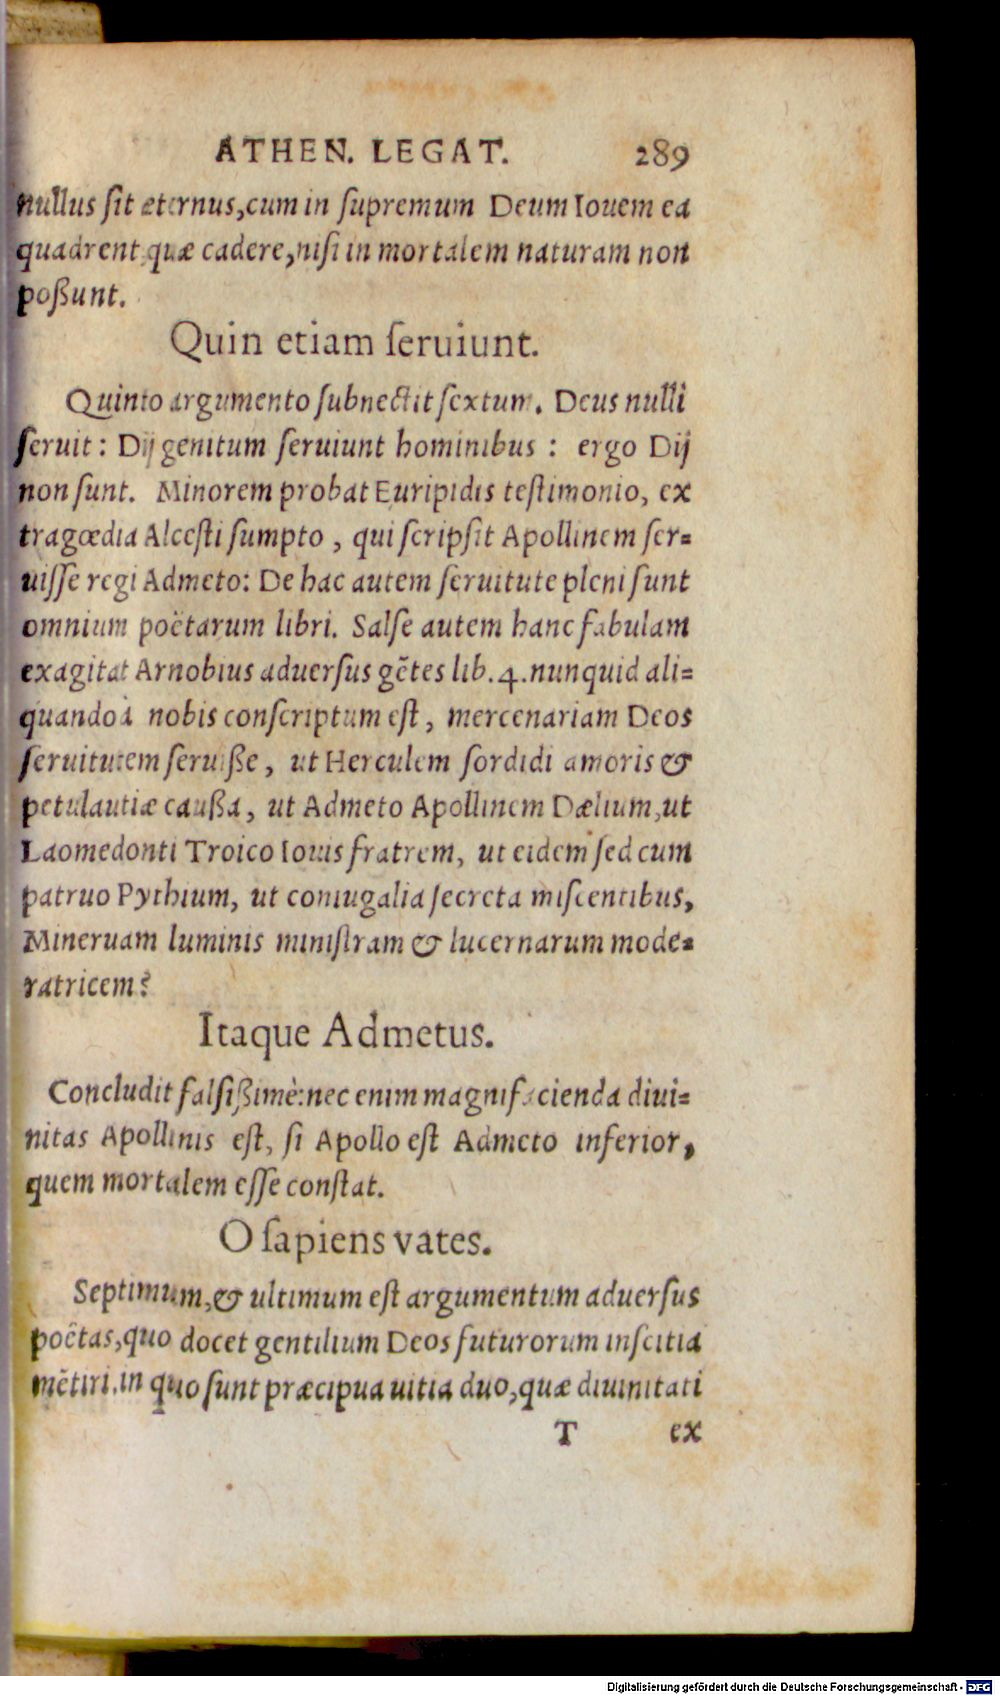 ATHEN. LEGAT. 289
nullus ſit æternus, cum in ſupremum Deum Iouem ea
quadrent quæ cadere, niſi in mortalem naturam non
poßunt.
Quin etiam ſeruiunt.
Quinto argumento ſubnectit ſextum. Deus nulli
ſeruit: Dij genitum ſeruiunt hominibus: ergo Dij
non ſunt. Minorem probat Euripidis teſtimonio, ex
tragœdia Alceſti ſumpto, qui ſcripſit Apollinem ſer=
uiſſe regi Admeto: De hac autem ſeruitute pleni ſunt
omnium poëtarum libri. Salſe autem hanc fabulam
exagitat Arnobius aduerſus gẽtes lib. 4. nunquid ali=
quando à nobis conſcriptum eſt, mercenariam Deos
ſeruitutem ſeruiße, ut Herculem ſordidi amoris &
petulautiæ caußa, ut Admeto Apollinem Dælium, ut
Laomedonti Troico Iouis fratrem, ut eidem ſed cum
patruo Pythium, ut coniugalia ſecreta miſcentibus,
Mineruam luminis miniſtram & lucernarum mode=
ratricem?
Itaque Admetus.
Concludit falſißimè: nec enim magnifacienda diui=
nitas Apollinis eſt, ſi Apollo eſt Admeto inferior,
quem mortalem eſſe conſtat.
O ſapiens vates.
Septimum, & ultimum eſt argumentum aduerſus
poëtas, quo docet gentilium Deos futurorum inſcitia
mẽtiri. in quo ſunt præcipua uitia duo, quæ diuinitati
T ex
Digitalisierung gefördert durch die Deutsche Forschungsgemeinschaft - DFG